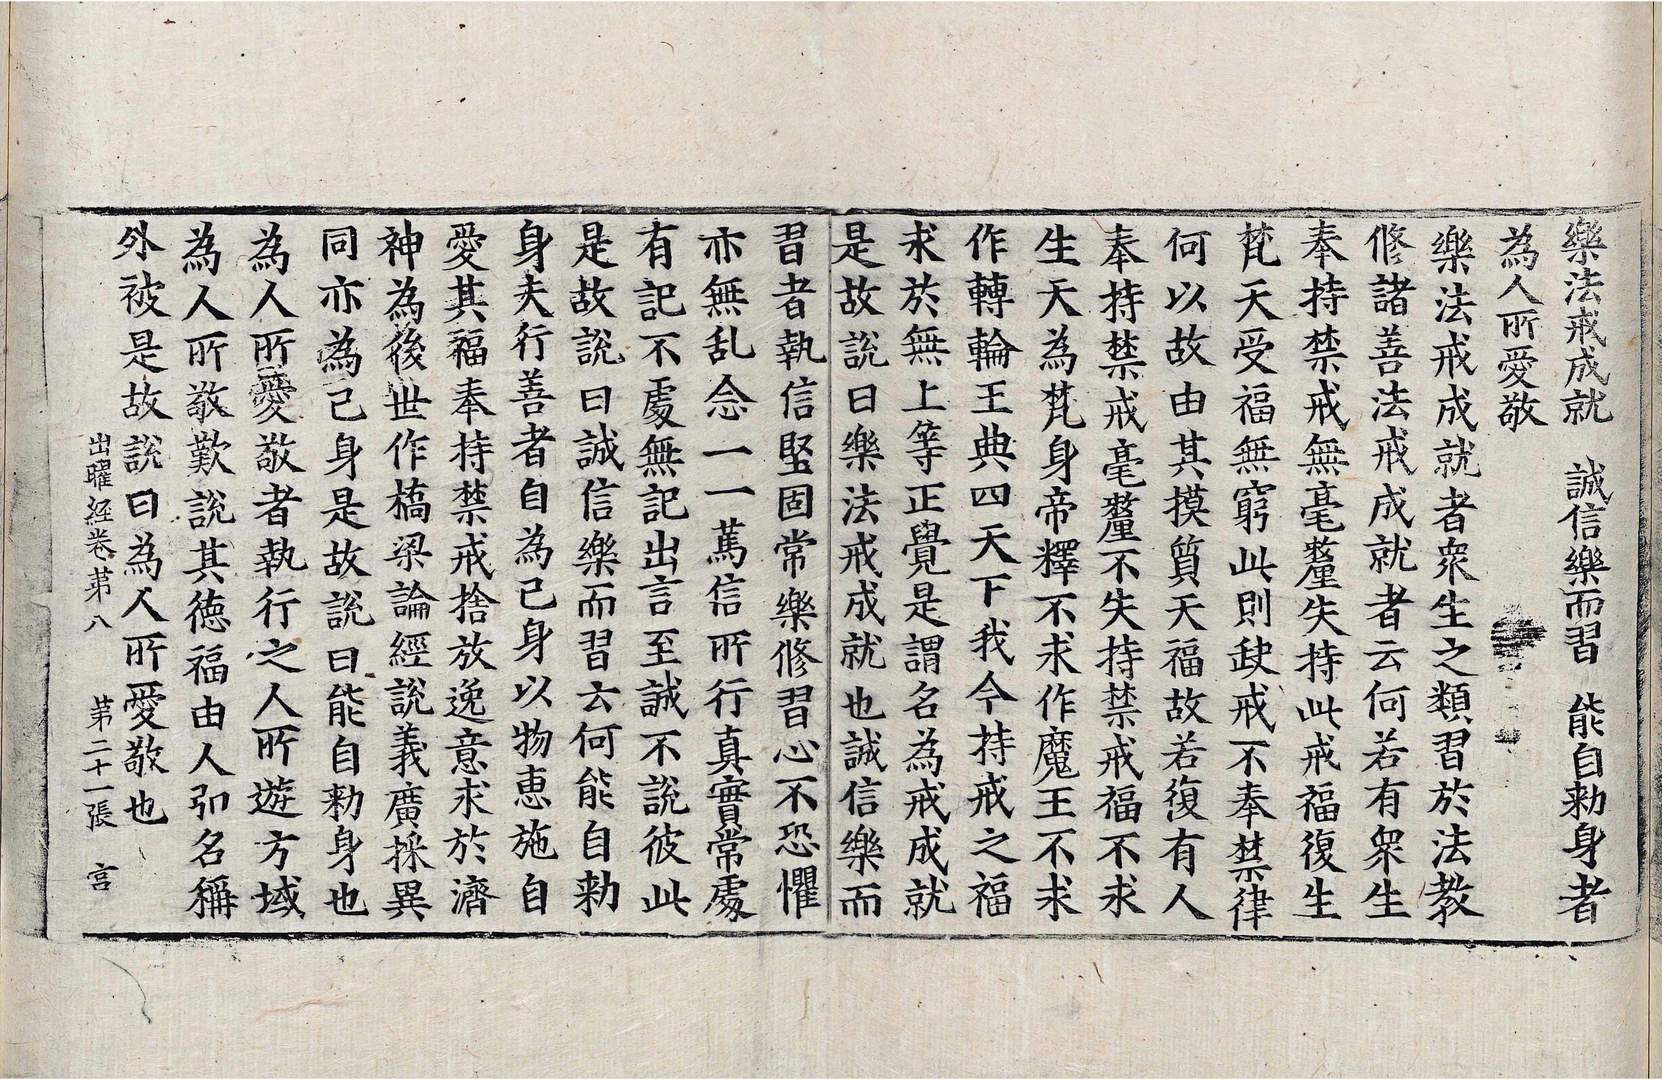 樂法戒成就　誠信樂而習　能自勑身者
為人所愛敬
樂法戒成就者衆生之類習於法教
修諸善法戒成就者云何若有衆生
奉持禁戒無毫氂失持此戒福復生
梵天受福無窮此則缺戒不奉禁律
何以故由其摸質天福故若復有人
奉持禁戒毫氂不失持禁戒福不求
生天為梵身帝釋不求作魔王不求
作轉輪王典四天下我今持戒之福
求於無上等正覺是謂名為戒成就
是故說曰樂法戒成就也誠信樂而
習者執信堅固常樂修習心不恐懼
亦無乱念一一篤信所行真實常處
有記不處無記出言至誠不說彼此
是故說曰誠信樂而習云何能自勑
身夫行善者自為己身以物惠施自
愛其福奉持禁戒捨放逸意求於濟
神為後世作橋梁論經說義廣採異
同亦為己身是故說曰能自勑身也
為人所愛敬者執行之人所遊方域
為人所敬歎說其德福由人弘名稱
外被是故說曰為人所愛敬也
出曜経卷苐八　苐二十一張　宮